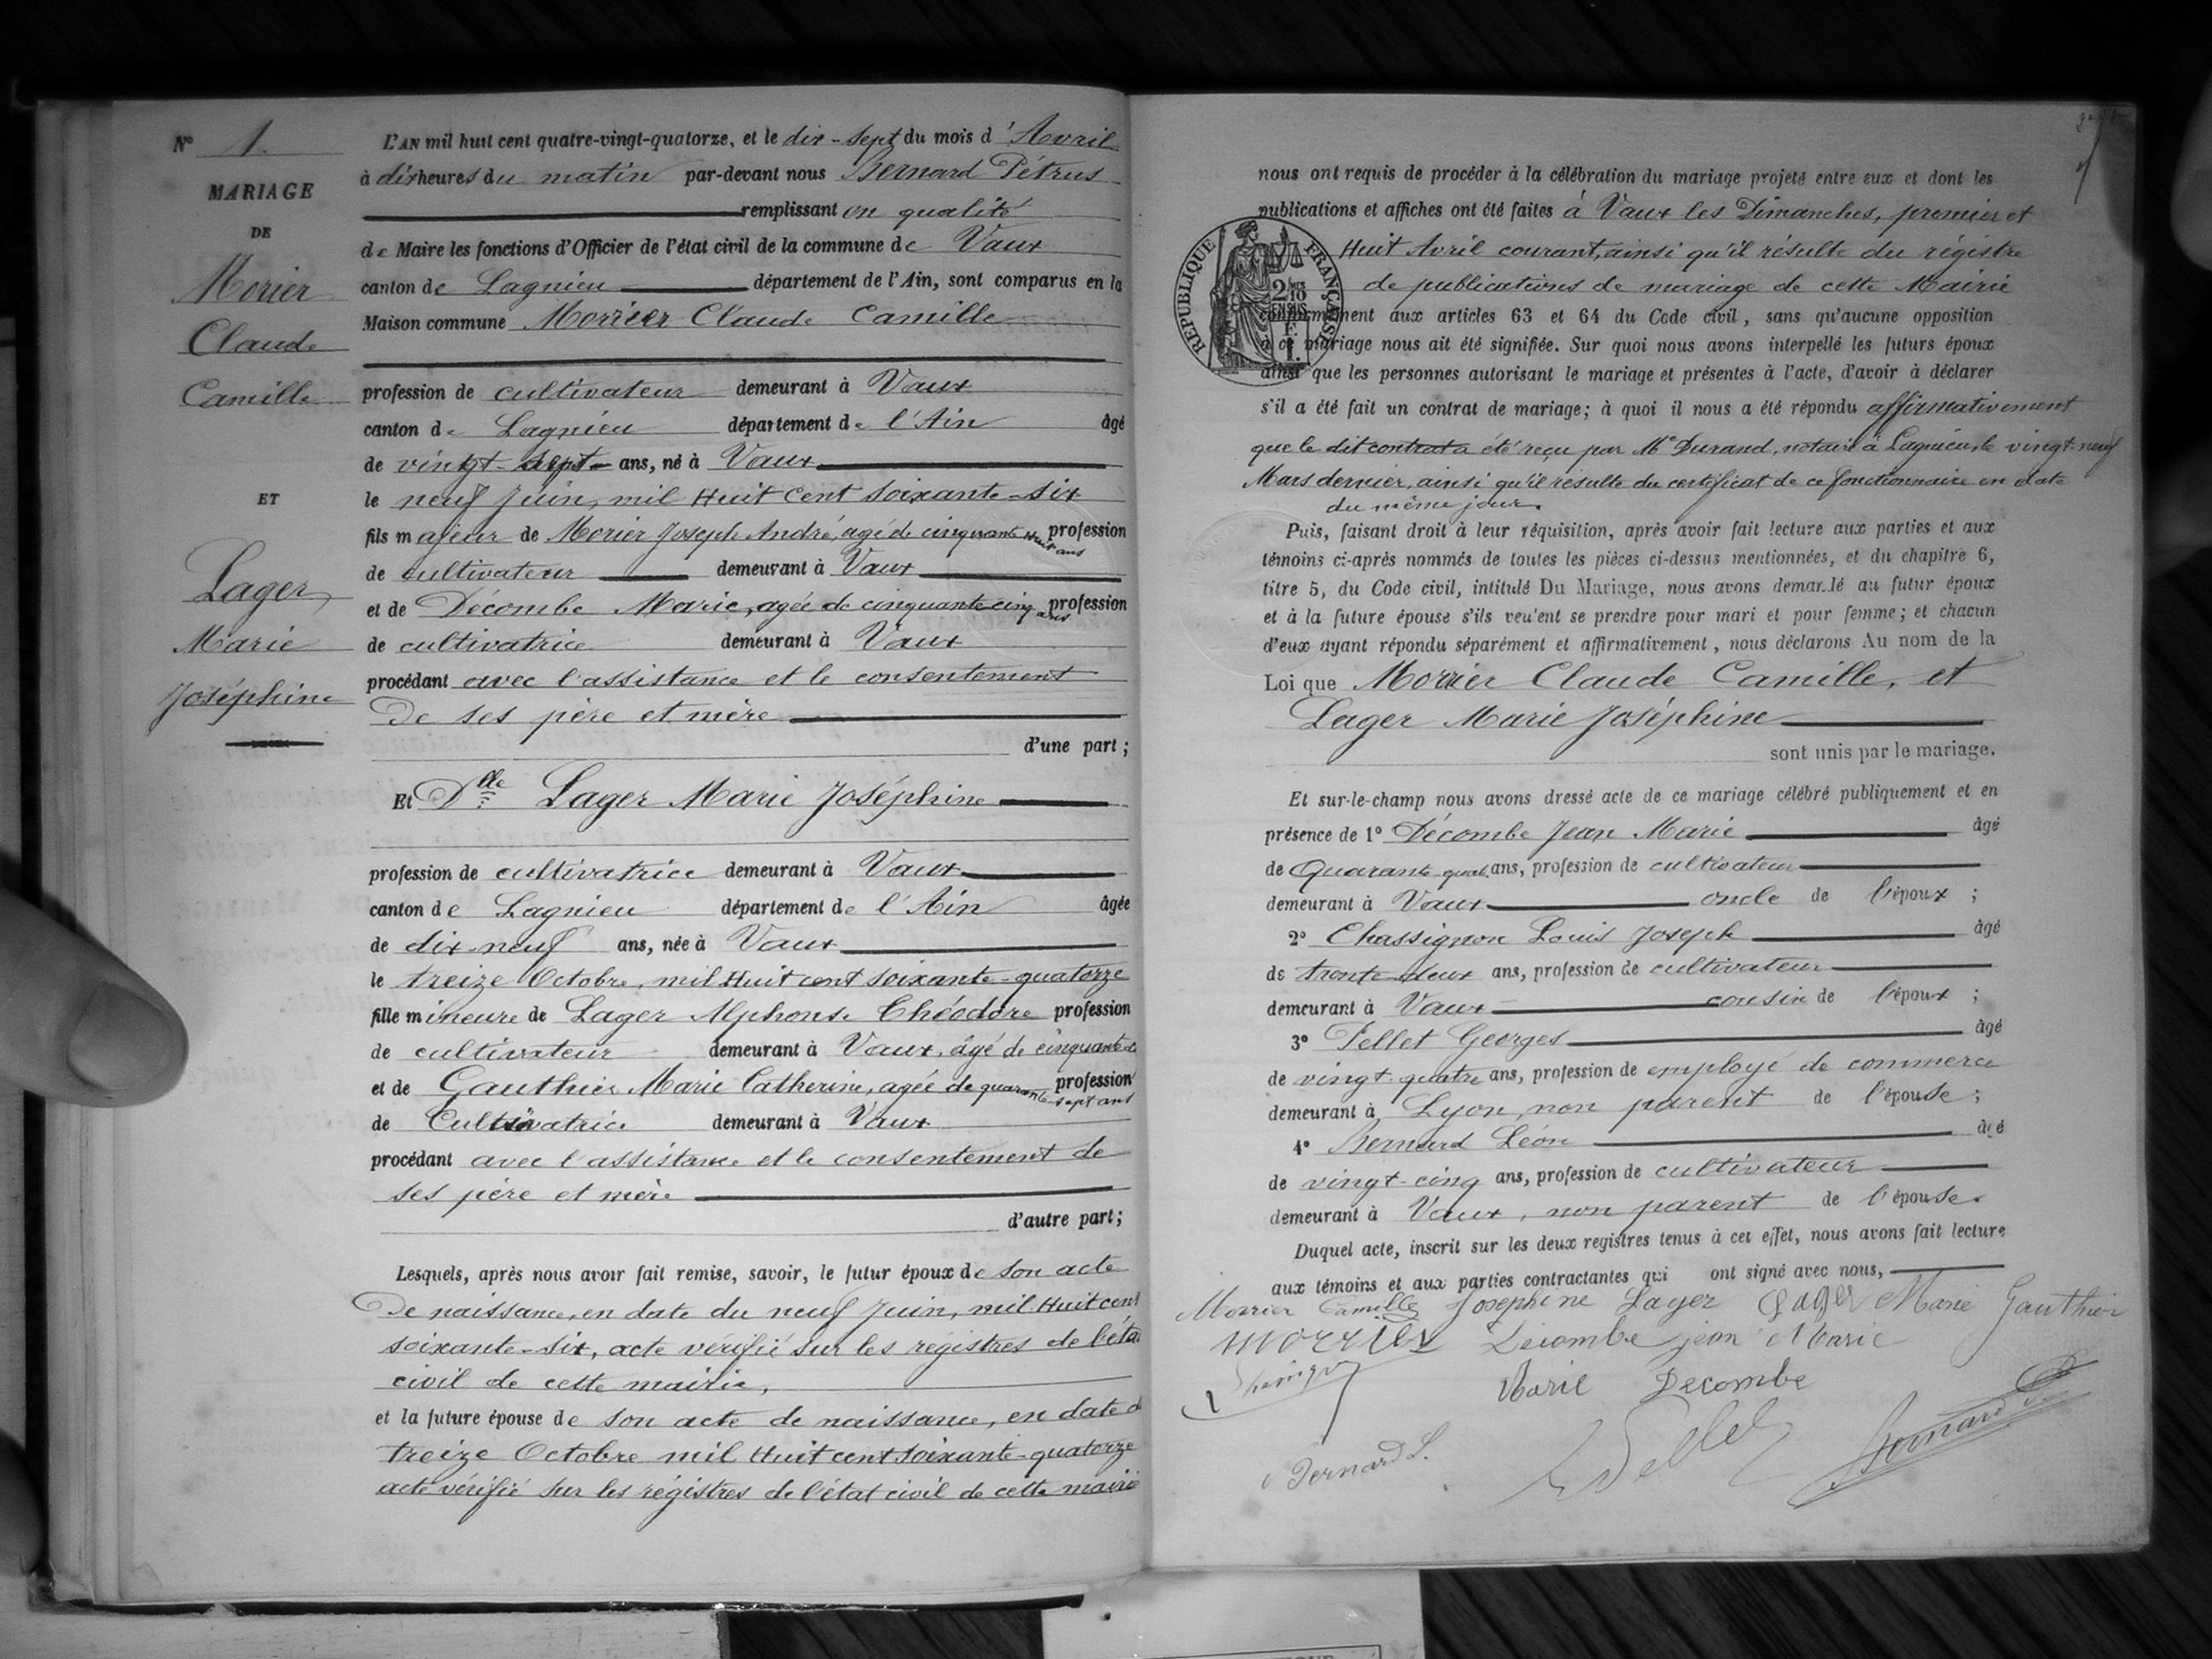 N° 1.
MARIAGE
DE
Morier
Claude
Camille
ET
Lager
Marie
Joséphine
L'AN mil huit cent quatre-vingt-quatorze, et le dix-sept du mois d'Avril
à dix heures du matin par-devant nous Bernard Pétrus
remplissant en qualité
de Maire les fonctions d'Officier de l'état civil de la commune de Vaux
canton de Lagnieu département de l'Ain, sont comparus en la
Maison commune Morrier Claude Camille
profession de cultivateur demeurant à Vaux
canton de Lagnieu département de l'Ain âgé
de vingt-sept ans, né à Vaux
le neuf Juin, mil Huit Cent soixante-six
fils majeur de Morier Joseph André, agé de cinquante Huit ans profession
de cultivateur demeurant à Vaux
et de Décombe Marie, agée de cinquante-cinq ans profession
de cultivatrice demeurant à Vaux
procédant avec l'assistance et le consentement
De ses père et mère
d'une part;
Et Dlle Lager Marie Joséphine
profession de cultivatrice demeurant à Vaux
canton de Lagnieu département de l'Ain âgée
de dix-neuf ans, née à Vaux
le treize Octobre, mil Huit cent soixante-quatorze
fille mineure de Lager Alphonse Théodore profession
de cultivateur demeurant à Vaux, âgé de cinquante
et de Gauthier Marie Catherine, agée de quarante-sept ans profession
de Cultivatrice demeurant à Vaux
procédant avec l'assistance et le consentement de
ses père et mère
d'autre part;
Lesquels, après nous avoir fait remise, savoir, le futur époux de son acte
De naissance, en date du neuf Juin, mil Huit cent
soixante-six, acte vérifié sur les régistres de l'état
civil de cette mairie,
et la future épouse de son acte de naissance, en date d
treize Octobre mil Huit cent soixante-quatorze
acte vérifié sur les régistres de l'état civil de cette mairie
nous ont requis de procéder à la célébration du mariage projeté entre eux et dont les
publications et affiches ont été faites à Vaux les Dimanches, premier et
Huit Avril courant, ainsi qu'il résulte du régistre
de publications de mariage de cette Mairie
conformément aux articles 63 et 64 du Code civil, sans qu'aucune opposition
à ce mariage nous ait été signifiée. Sur quoi nous avons interpellé les futurs époux
ainsi que les personnes autorisant le mariage et présentes à l'acte, d'avoir à déclarer
s'il a été fait un contrat de mariage; à quoi il nous a été répondu affirmativement
que le dit contrat a été reçu par Me Durand, notaire à Lagnieu, le vingt-neuf
Mars dernier, ainsi qu'il résulte du certificat de ce fonctionnaire en date
du même jour.
RÉPUBLIQUE FRANÇAISE
2/10
EN SUS
F.
1.
Puis, faisant droit à leur réquisition, après avoir fait lecture aux parties et aux
témoins ci-après nommés de toutes les pièces ci-dessus mentionnées, et du chapitre 6,
titre 5, du Code civil, intitulé Du Mariage, nous avons demandé au futur époux
et à la future épouse s'ils veulent se prendre pour mari et pour femme; et chacun
d'eux ayant répondu séparément et affirmativement, nous déclarons Au nom de la
Loi que Morrier Claude Camille, et
Lager Marie Joséphine
sont unis par le mariage.
Et sur-le-champ nous avons dressé acte de ce mariage célébré publiquement et en
présence de 1° Décombe Jean Marie âgé
de Quarante-quat. ans, profession de cultivateur
demeurant à Vaux oncle de l'époux;
2° Chassignon Louis Joseph âgé
de trente-deux ans, profession de cultivateur
demeurant à Vaux cousin de l'époux;
3° Pellet Georges âgé
de vingt-quatre ans, profession de employé de commerce
demeurant à Lyon, non parent de l'épouse;
4° Bernard Léon âgé
de vingt-cinq ans, profession de cultivateur
demeurant à Vaux, non parent de l'épouse.
Duquel acte, inscrit sur les deux registres tenus à cet effet, nous avons fait lecture
aux témoins et aux parties contractantes qui ont signé avec nous,
Morrier Camille Josephine Lager Lager Marie Gauthier
morrier Décombe jean Marie
Marie Decombe
Bernard L. Pellet Bernard